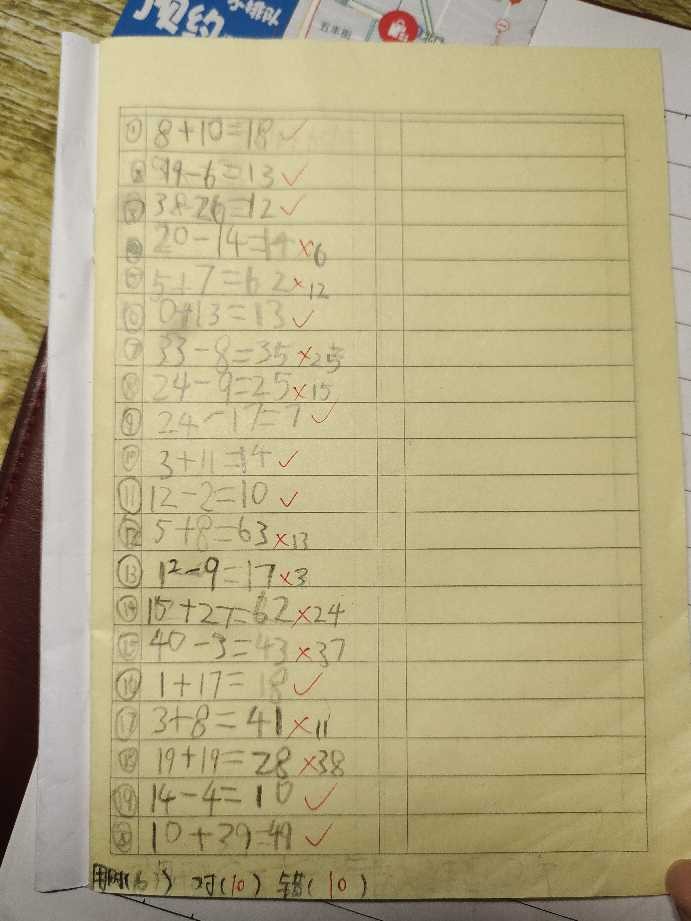 五丰街
① 8+10=18 ✓
19-6=13 ✓
③ 38-26=12 ✓
20-14=14 × 6
⑤ 5+7=62 × 12
⑥ 0+13=13 ✓
⑦ 33-8=35 × 25
⑧ 24-9=25 × 15
⑨ 24-17=7 ✓
⑩ 3+11=14 ✓
⑪ 12-2=10 ✓
⑫ 5+8=63 × 13
⑬ 12-9=17 × 3
⑭ 15+27=62 × 24
⑮ 40-3=43 × 37
⑯ 1+17=18 ✓
⑰ 3+8=41 × 11
⑱ 19+19=28 × 38
⑲ 14-4=10 ✓
⑳ 10+39=49 ✓
用时( ) 对(10) 错(10)